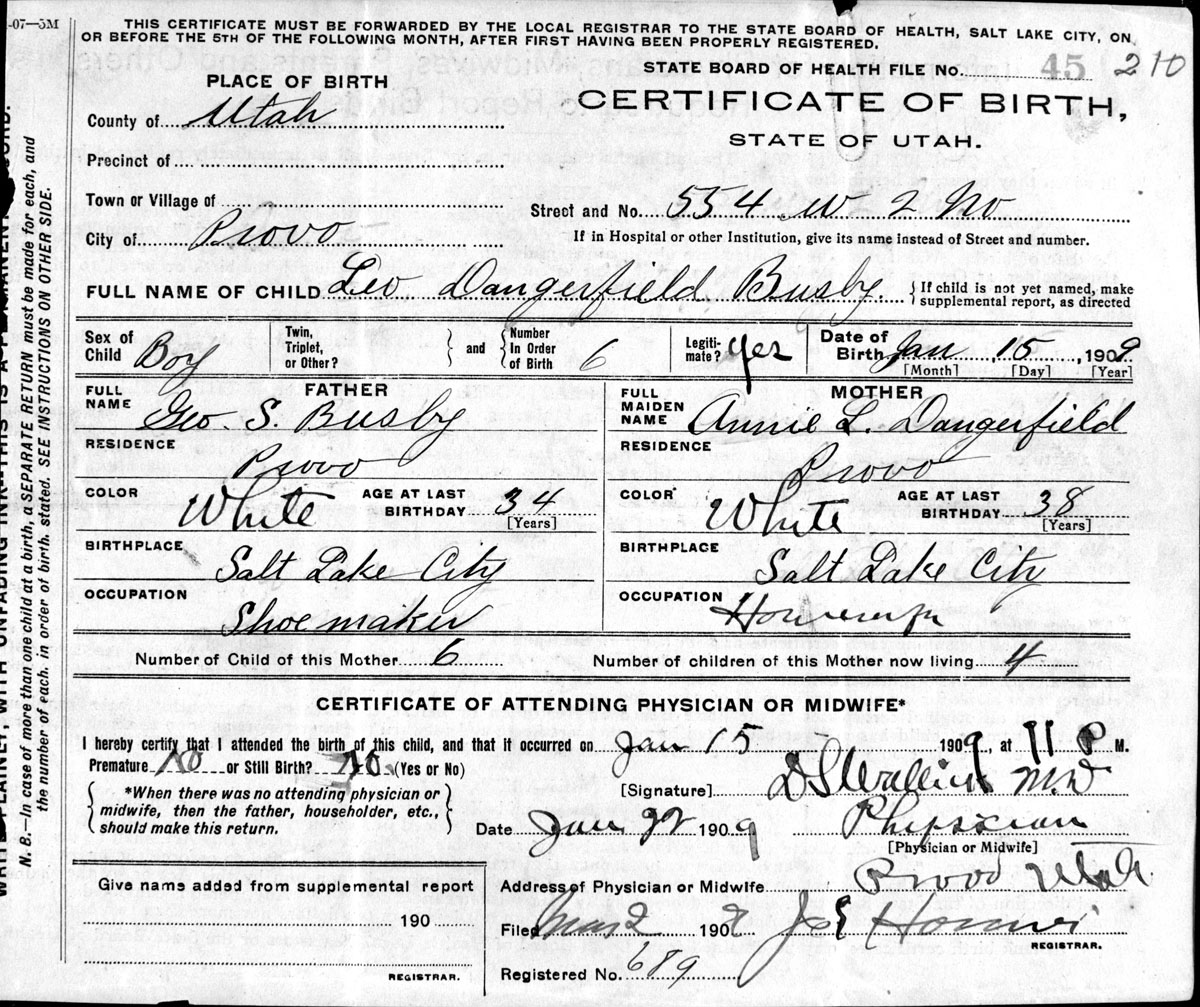 -07—5M
THIS CERTIFICATE MUST BE FORWARDED BY THE LOCAL REGISTRAR TO THE STATE BOARD OF HEALTH, SALT LAKE CITY, ON
OR BEFORE THE 5TH OF THE FOLLOWING MONTH, AFTER FIRST HAVING BEEN PROPERLY REGISTERED.
STATE BOARD OF HEALTH FILE No. 45 210
PLACE OF BIRTH
CERTIFICATE OF BIRTH,
STATE OF UTAH.
County of Utah
Precinct of
Town or Village of
Street and No. 554 W 2 No
City of Provo
If in Hospital or other Institution, give its name instead of Street and number.
FULL NAME OF CHILD Leo Dangerfield Busby. { If child is not yet named, make
supplemental report, as directed
Sex of Child Boy
Twin, Triplet, or Other? } and { Number In Order of Birth 6
Legiti-mate? Yes
Date of Birth Jan 15, 1909
[Month] [Day] [Year]
FATHER
FULL NAME Geo. S. Busby
MOTHER
FULL MAIDEN NAME Annie L. Dangerfield
RESIDENCE Provo
RESIDENCE Provo
COLOR White AGE AT LAST BIRTHDAY 34 [Years]
COLOR White AGE AT LAST BIRTHDAY 38 [Years]
BIRTHPLACE Salt Lake City
BIRTHPLACE Salt Lake City
OCCUPATION Shoemaker
OCCUPATION
Number of Child of this Mother 6 Number of children of this Mother now living 4
CERTIFICATE OF ATTENDING PHYSICIAN OR MIDWIFE*
I hereby certify that I attended the birth of this child, and that it occurred on Jan 15 1909, at 11 P M.
Premature No or Still Birth? No. (Yes or No)
[Signature] M.D
{ *When there was no attending physician or
midwife, then the father, householder, etc.,
should make this return. }
Date Jan 22 1909 Physician
[Physician or Midwife]
Give name added from supplemental report
190
REGISTRAR.
Address of Physician or Midwife Provo Utah.
Filed Mar 2 1909
REGISTRAR.
Registered No. 689
WRITE PLAINLY, WITH UNFADING INK--THIS IS A PERMANENT RECORD.
N. B.—In case of more than one child at a birth, a SEPARATE RETURN must be made for each, and
the number of each, in order of birth, stated. SEE INSTRUCTIONS ON OTHER SIDE.